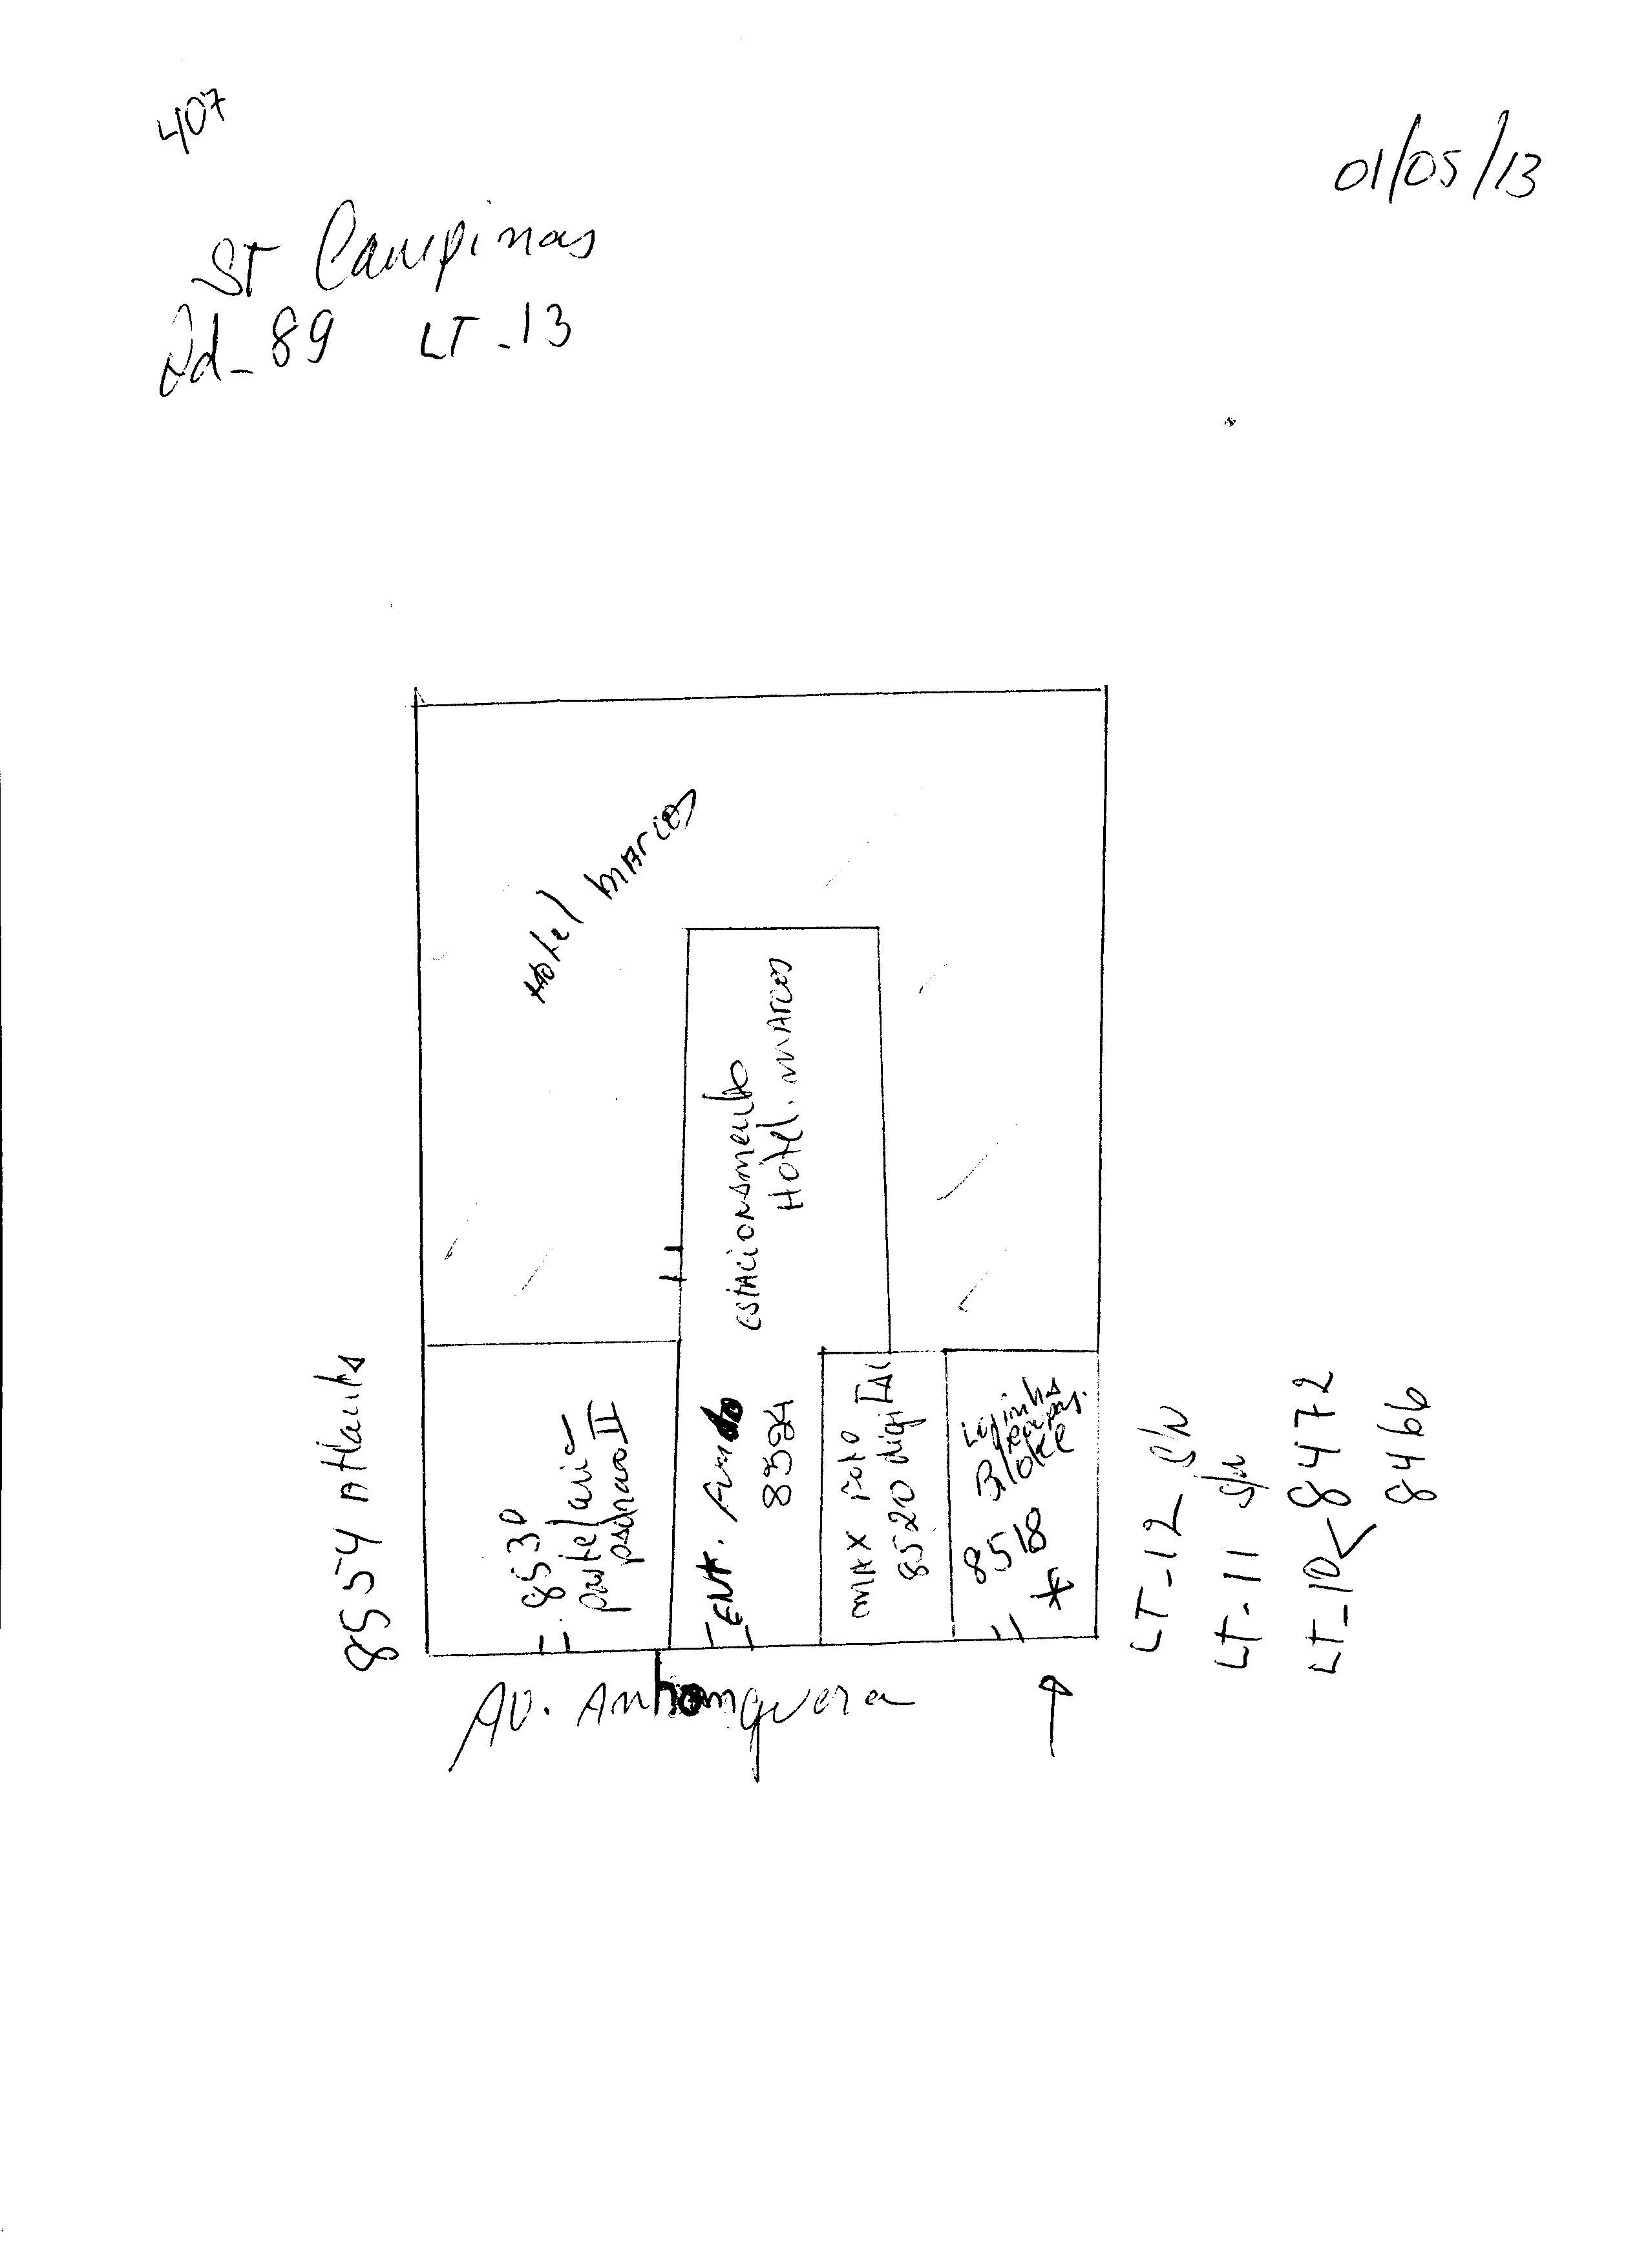 407
01/05/13
ST Campinas
Qd_89 LT_13
Hotel MARCOS
ESTACIONAMENTO
Hotel. MARCOS
8554 Atlanta
8530
pastelaria
II
ENT.
8524
MAX FOTO
8520 digiTAl
Lojinha
8518
*
LT_12 S/N
LT_11 S/N
LT_10 8472
8466
AV. Anhanguera